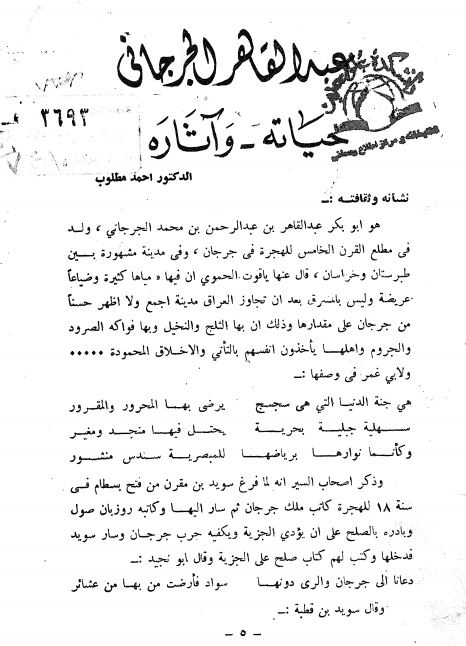 عبدالقاهر الجرجاني
٣٦٩٣
حياته - وآثاره
كتابخانه و مركز اطلاع رسانى
الدكتور احمد مطلوب
نشأته وثقافتـه :ـ
هو ابو بكر عبدالقاهر بن عبدالرحمن بن محمد الجرجاني ، ولـد
فى مطلع القرن الخامس للهجرة فى جرجان ، وفى مدينة مشهورة بـين
طبرستان وخراسان ، قال عنها ياقوت الحموي ان فيها « مياها كثيرة وضياعاً
عريضة وليس بالمشرق بعد ان تجاوز العراق مدينة اجمع ولا اظهر حسناً
من جرجان على مقدارها وذلك ان بها الثلج والنخيل وبها فواكه الصرود
والجروم واهلهـا يأخذون انفسهم بالتأني والاخلاق المحمودة ٠٠٠٠٠
ولابي غمر فى وصفها :ـ
هي جنة الدنيـا التي هى سجسج يرضى بهـا المحرور والمقـرور
سـهلية جبليـة بحريـة يحتـل فيهـا منجـد ومغيـر
وكأنمـا نوارهـا برياضهـا للمبصريـة سندس منشـور
وذكر اصحاب السير انه لما فرغ سويد بن مقرن من فتح بسطام فـى
سنة ١٨ للهجرة كاتب ملك جرجان ثم سار اليهـا وكاتبه روزبان صول
وبادره بالصلح على ان يؤدي الجزية ويكفيه حرب جرجـان وسار سويد
فدخلها وكتب لهم كتاب صلح على الجزية وقال ابو نجيد :ـ
دعانا الى جرجان والرى دونهـا سواد فأرضت من بهـا من عشائر
وقال سويد بن قطبة :ـ
ـ ٥ ـ